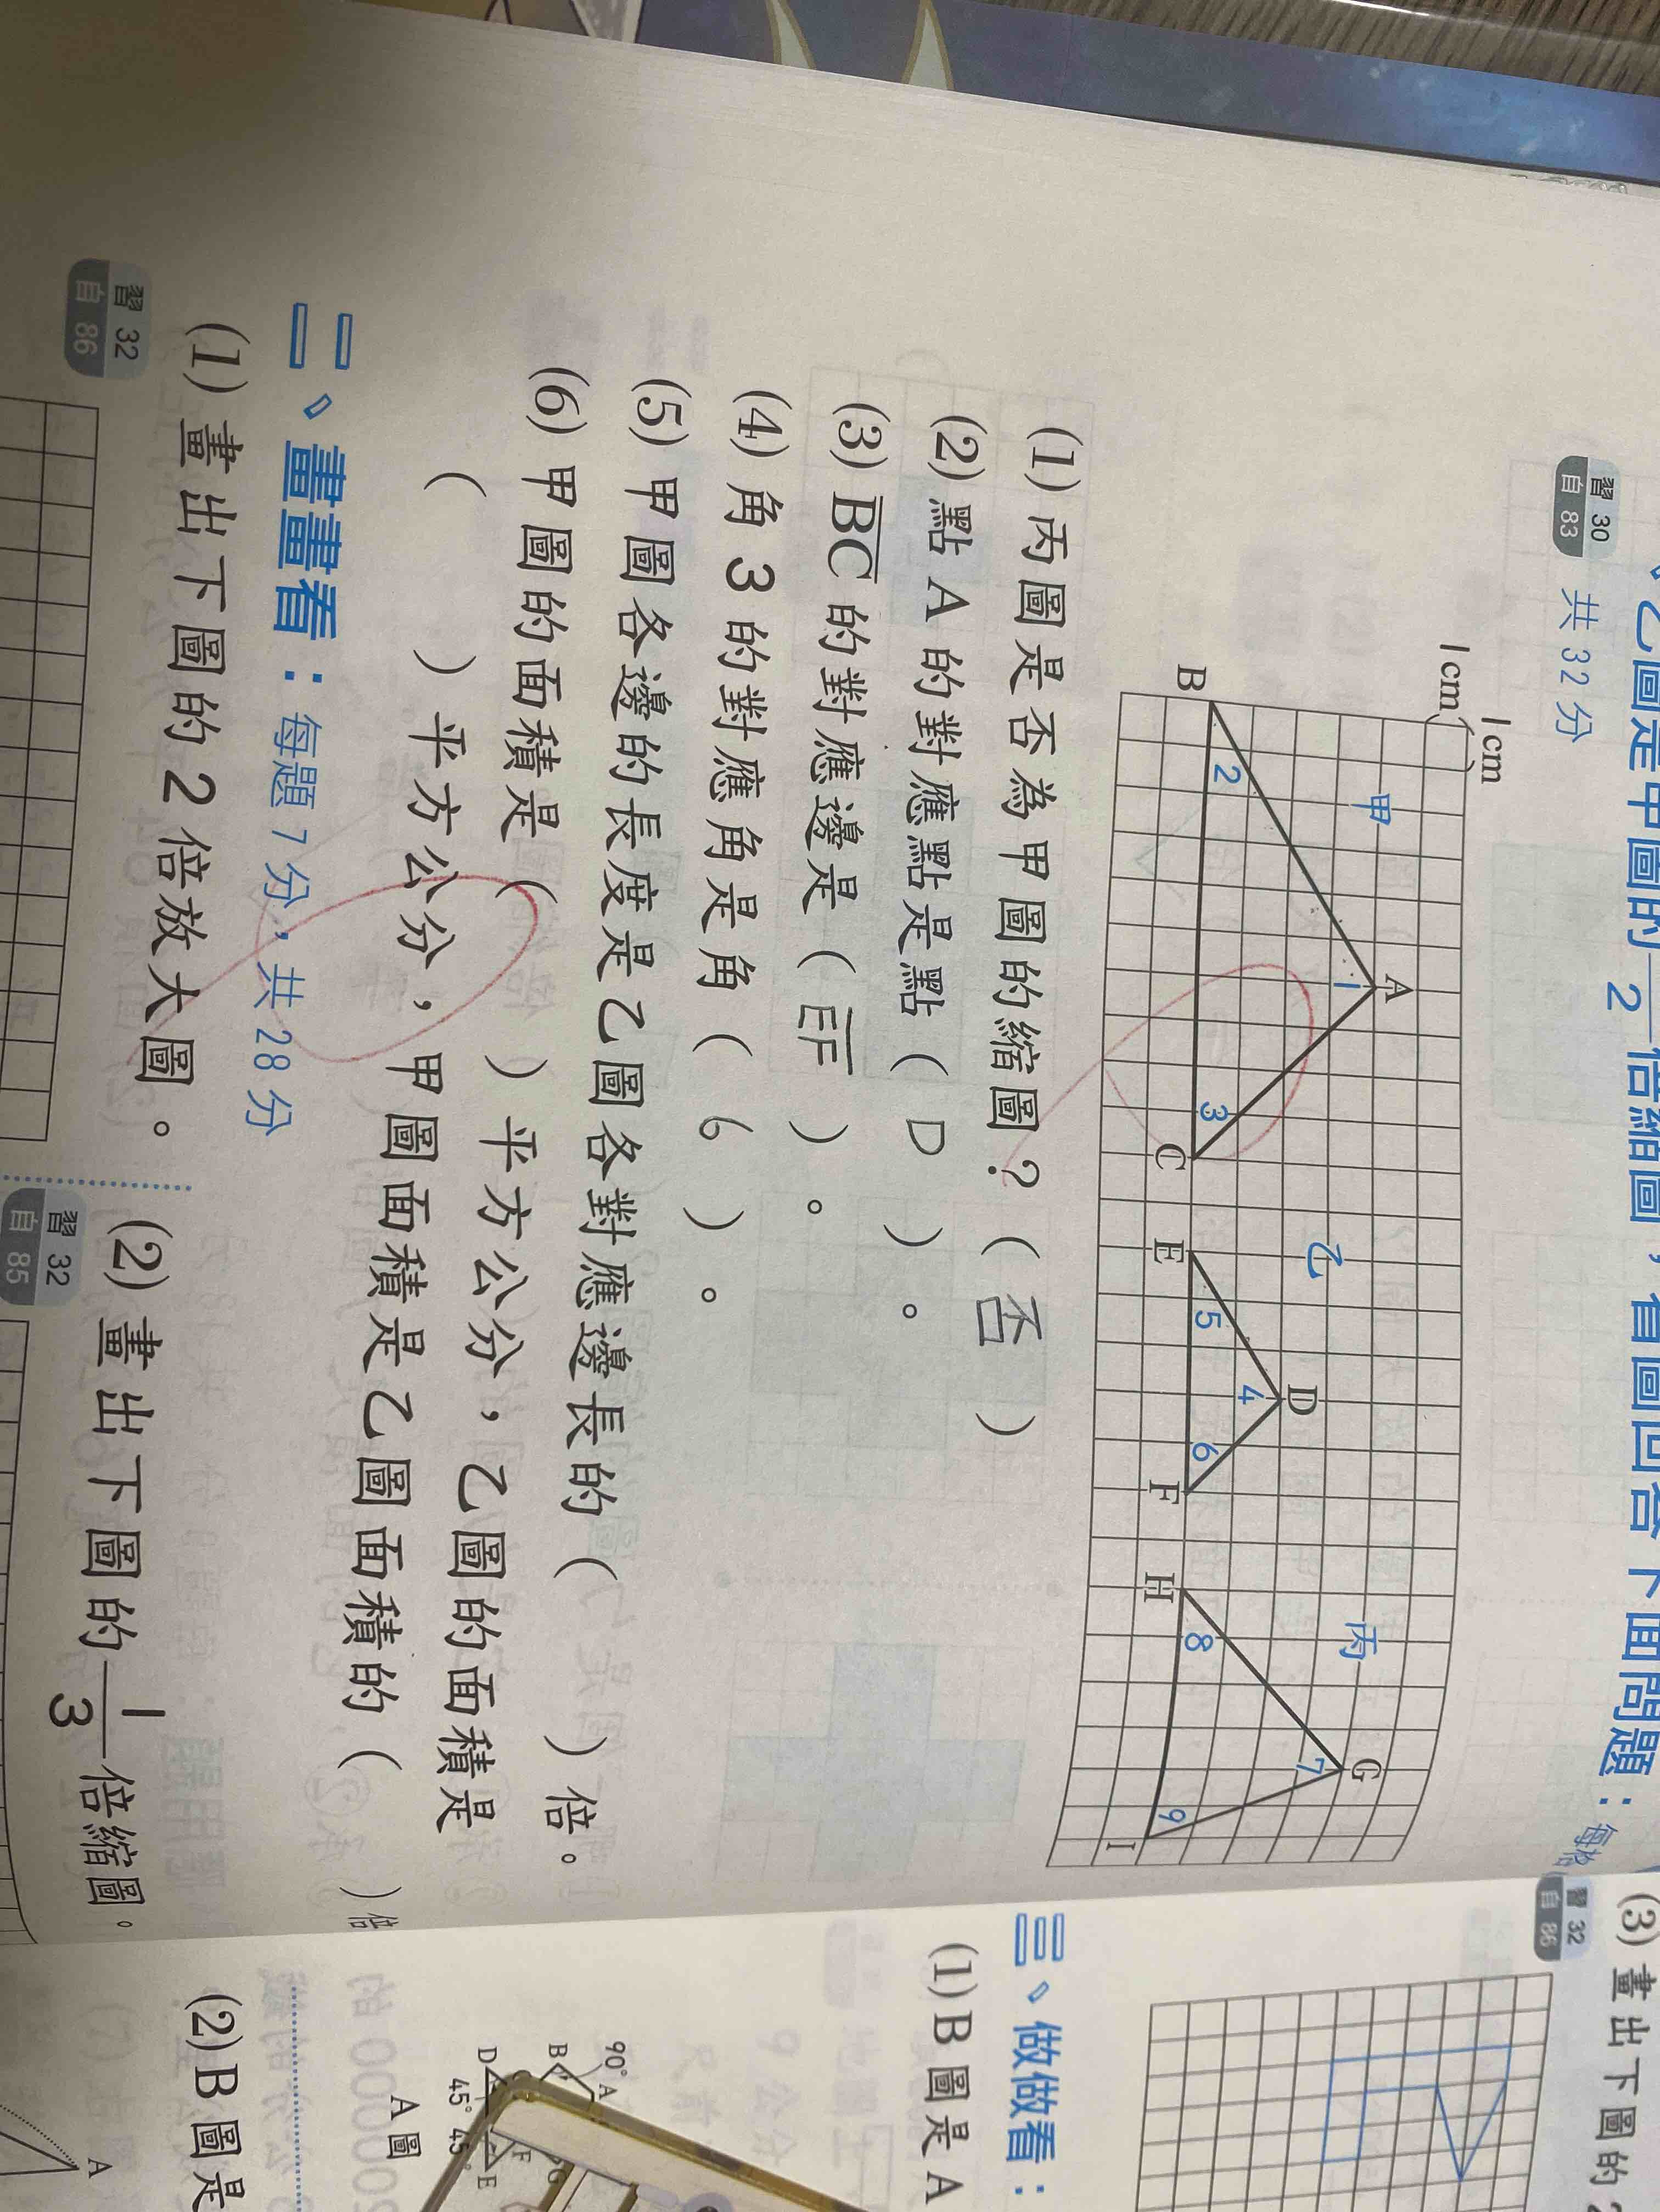 乙圖是甲圖的 1/2 倍縮圖，看圖回答下面問題：每格
習 30
自 83
共 32 分
1cm
1cm
甲
乙
丙
A
B
C
D
E
F
G
H
I
1
2
3
4
5
6
7
8
9
(1) 丙圖是否為甲圖的縮圖？（ 否 ）
(2) 點 A 的對應點是點（ D ）。
(3) B̅C̅ 的對應邊是（ E̅F̅ ）。
(4) 角 3 的對應角是角（ 6 ）。
(5) 甲圖各邊的長度是乙圖各對應邊長的（ ）倍。
(6) 甲圖的面積是（ ）平方公分，乙圖的面積是
（ ）平方公分，甲圖面積是乙圖面積的（ ）倍
二、畫畫看：每題 7 分，共 28 分
習 32
自 86
(1) 畫出下圖的 2 倍放大圖。
習 32
自 85
(2) 畫出下圖的 1/3 倍縮圖。
習 32
自 86
(3) 畫出下圖的
三、做做看：
(1) B 圖是 A
90°
A
B
D
45°
45°
E
F
G
A 圖
(2) B 圖是
A